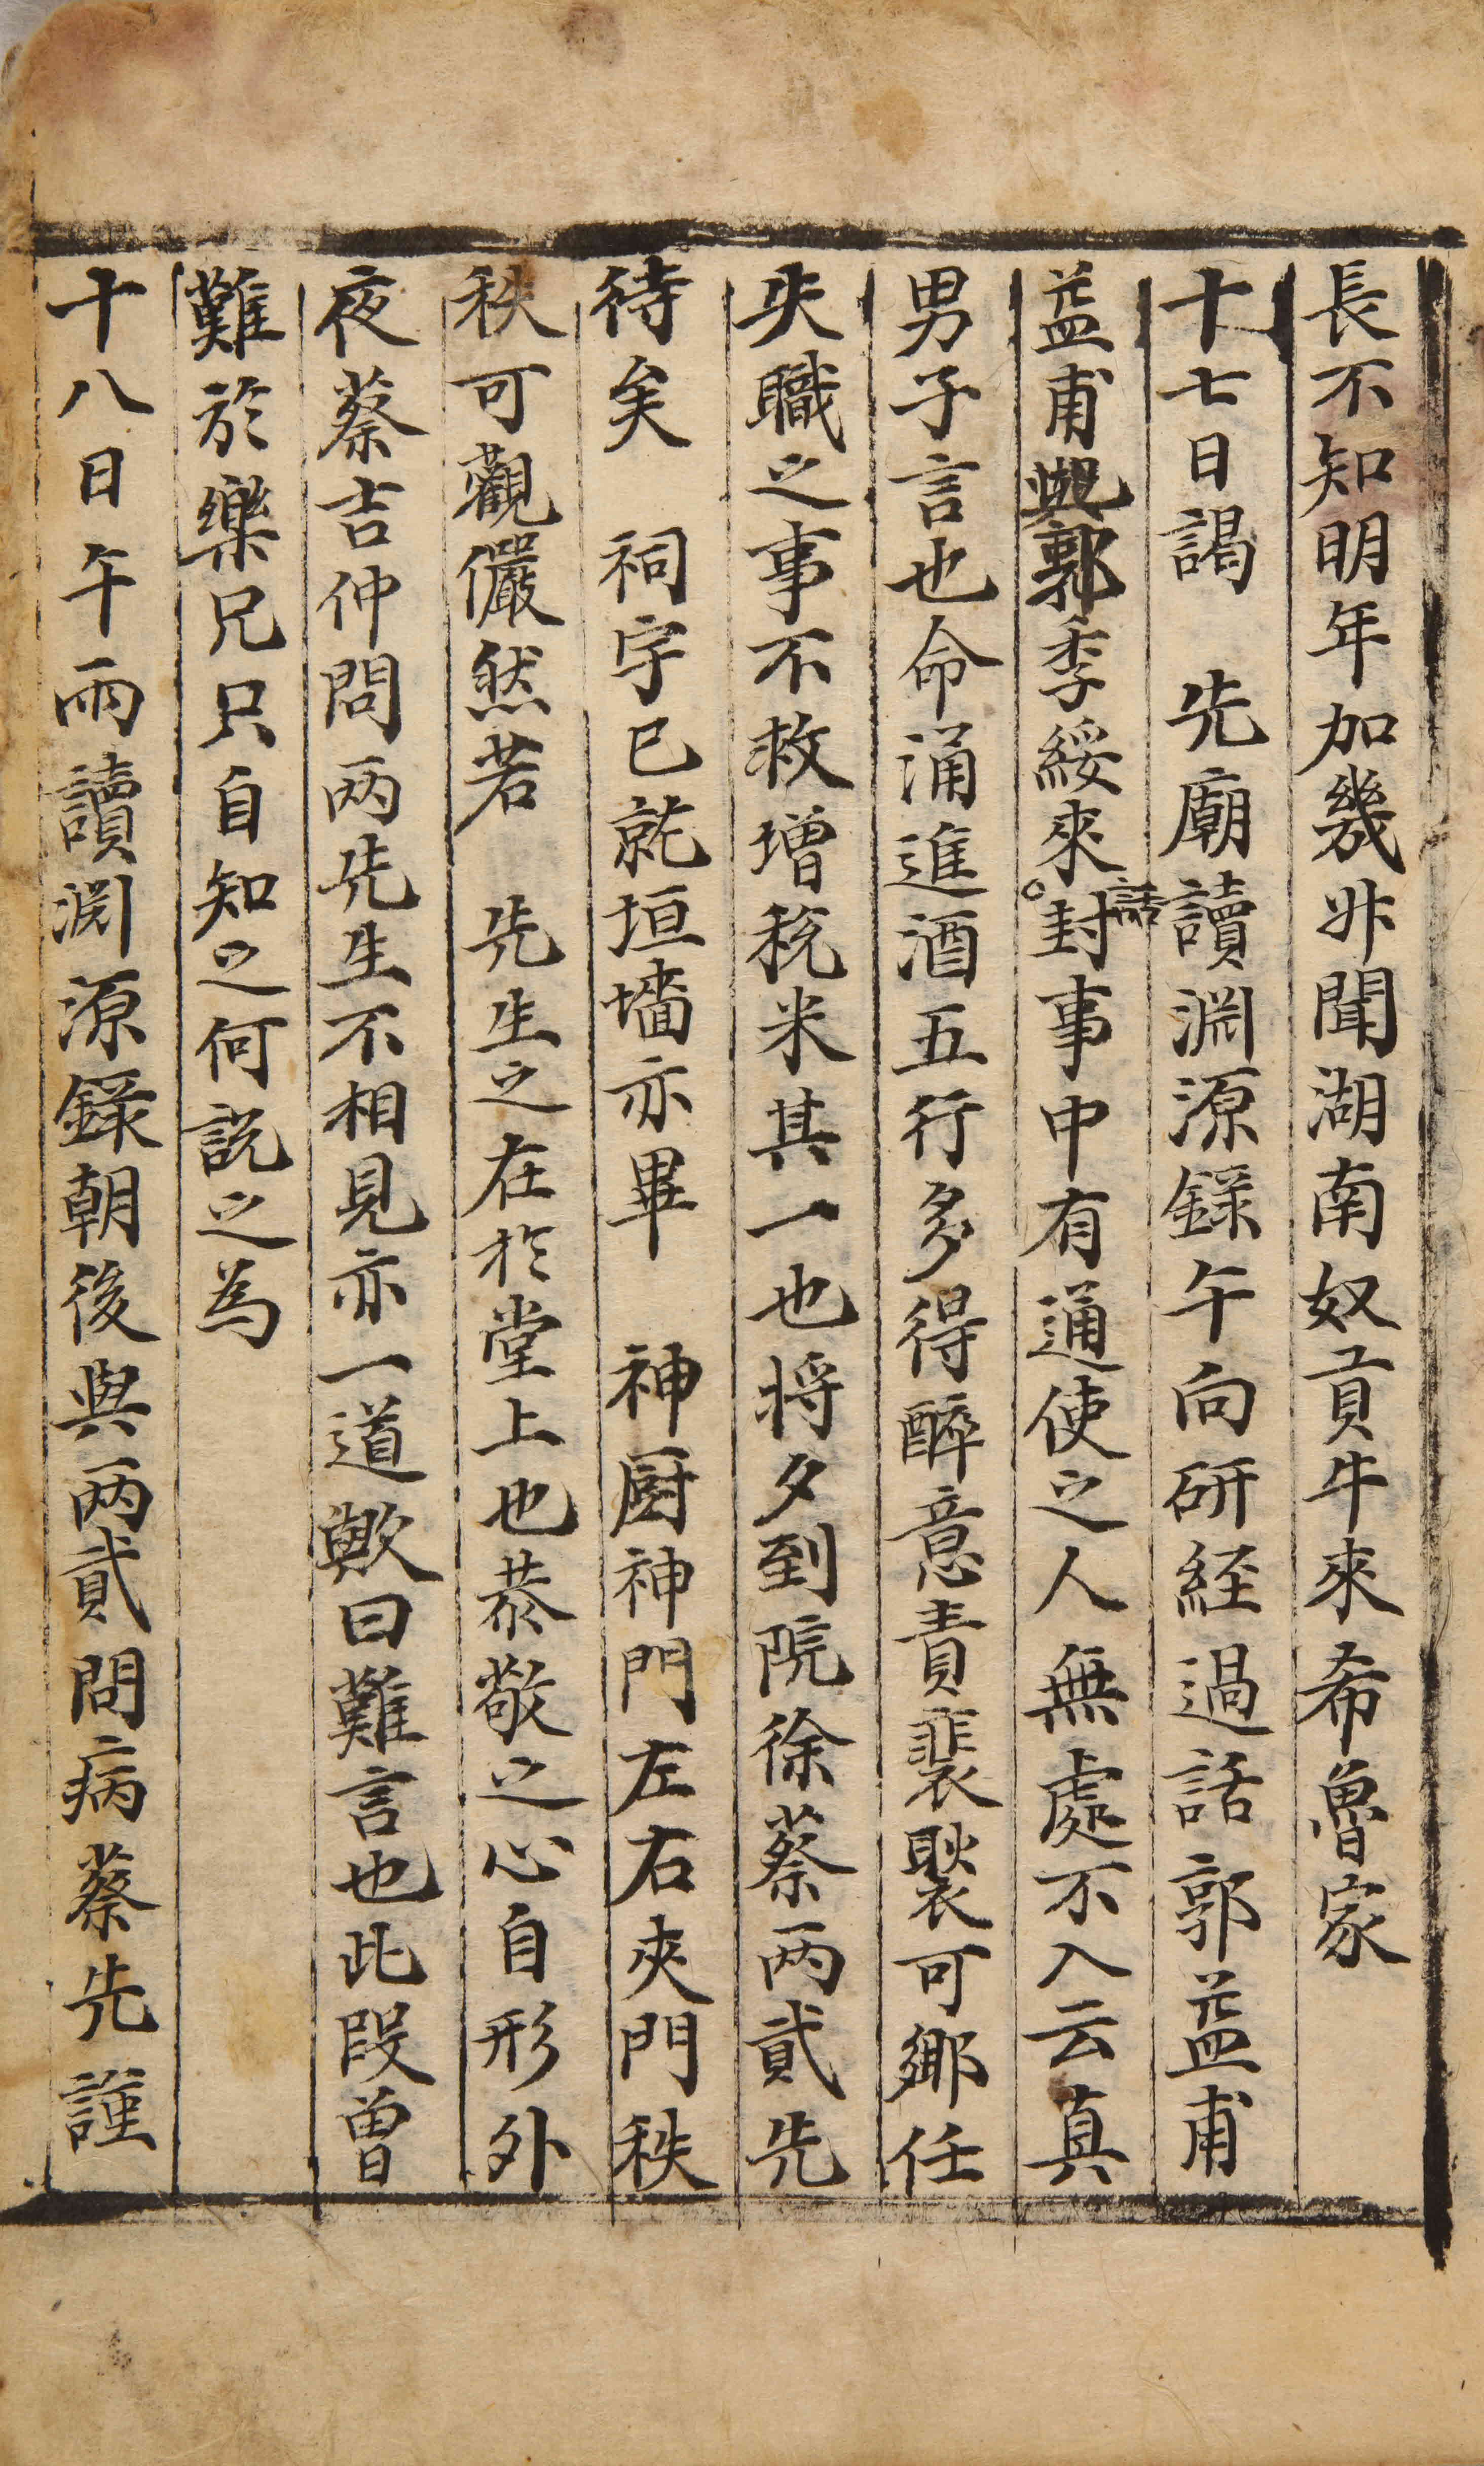 長不知明年加幾非聞湖南奴貢牛來希魯家
十七日謁 先廟讀淵源錄午向研経過話郭益甫
益甫與郭季綏來話封事中有通使之人無處不入云真
男子言也命涌進酒五行多得醉意責裴褧可鄉任
失職之事不救增稅米其一也將夕到院徐蔡两貳先
待矣 祠宇已就垣墻亦畢 神厨神門左右夾門秩
秩可觀儼然若 先生之在於堂上也恭敬之心自形外
夜蔡吉仲問两先生不相見亦一道歟曰難言也此段曾
難於樂兄只自知之何説之為
十八日午雨讀淵源錄朝後與两貳問病蔡先謹